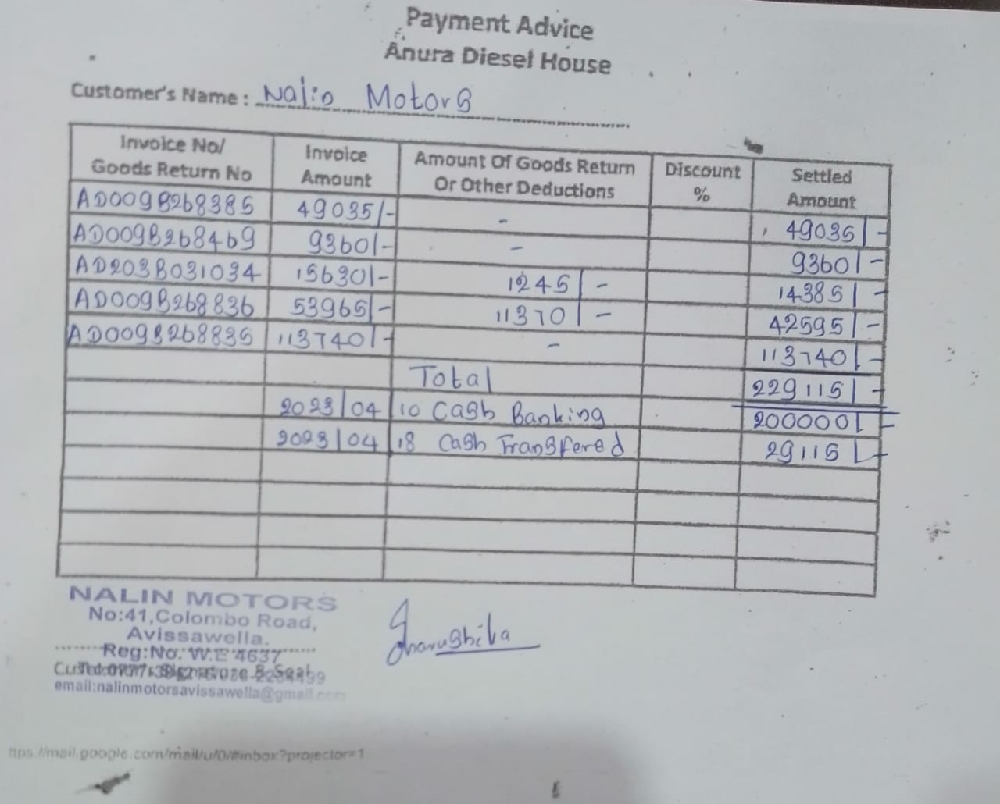 Payment Advice
Anura Diesel House
Customer's Name : Nalin Motors
Invoice No/ Goods Return No Invoice Amount Amount Of Goods Return Or Other Deductions Discount % Settled Amount
AD009B268385 49035/- - 49035/-
AD009B268469 9360/- - 9360/-
AD203B031034 15630/- 1245/- 14385/-
AD009B268836 53965/- 11370/- 42595/-
AD009B268835 113740/- - 113740/-
Total 229115/-
2023/04/10 Cash Banking 200000/-
2023/04/18 Cash Transfered 29115/-
NALIN MOTORS
No:41,Colombo Road,
Avissawella.
Reg:No: W.E 4637
email:nalinmotorsavissawella@gmail.com
tps://mail.google.com/mail/u/0/#inbox?projector=1